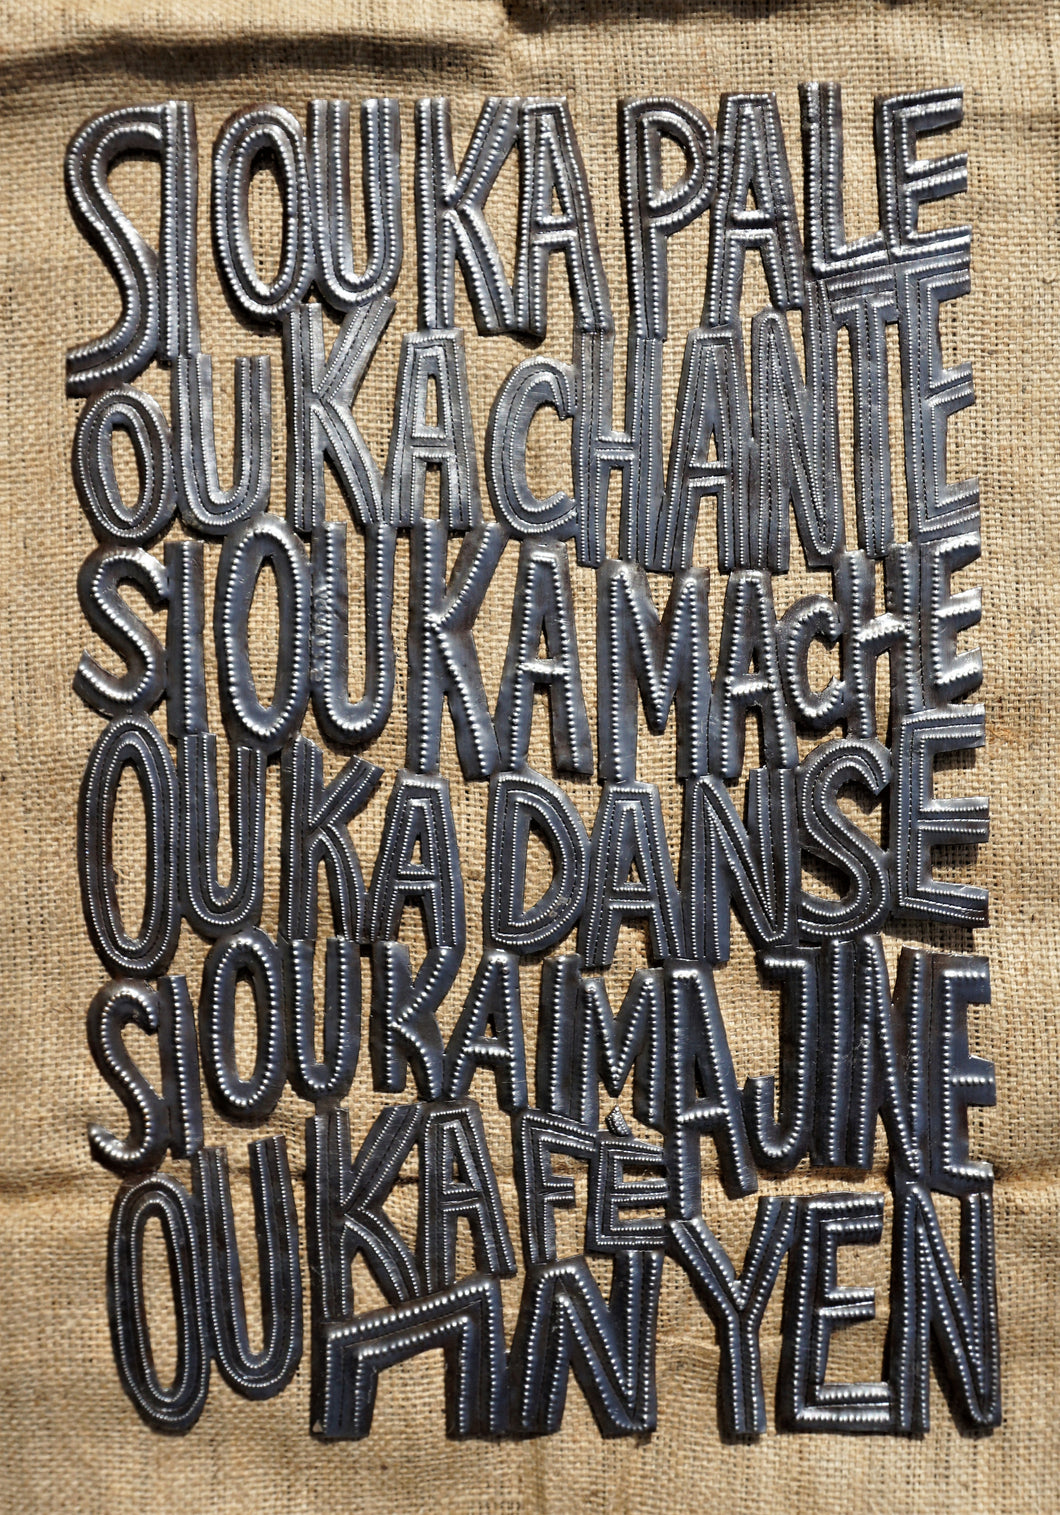 SI OU KA PALE
OU KA CHANTE
SI OU KA MACHE
OU KA DANSE
SI OU KA IMAJINE
OU KA FÈ
ANYEN